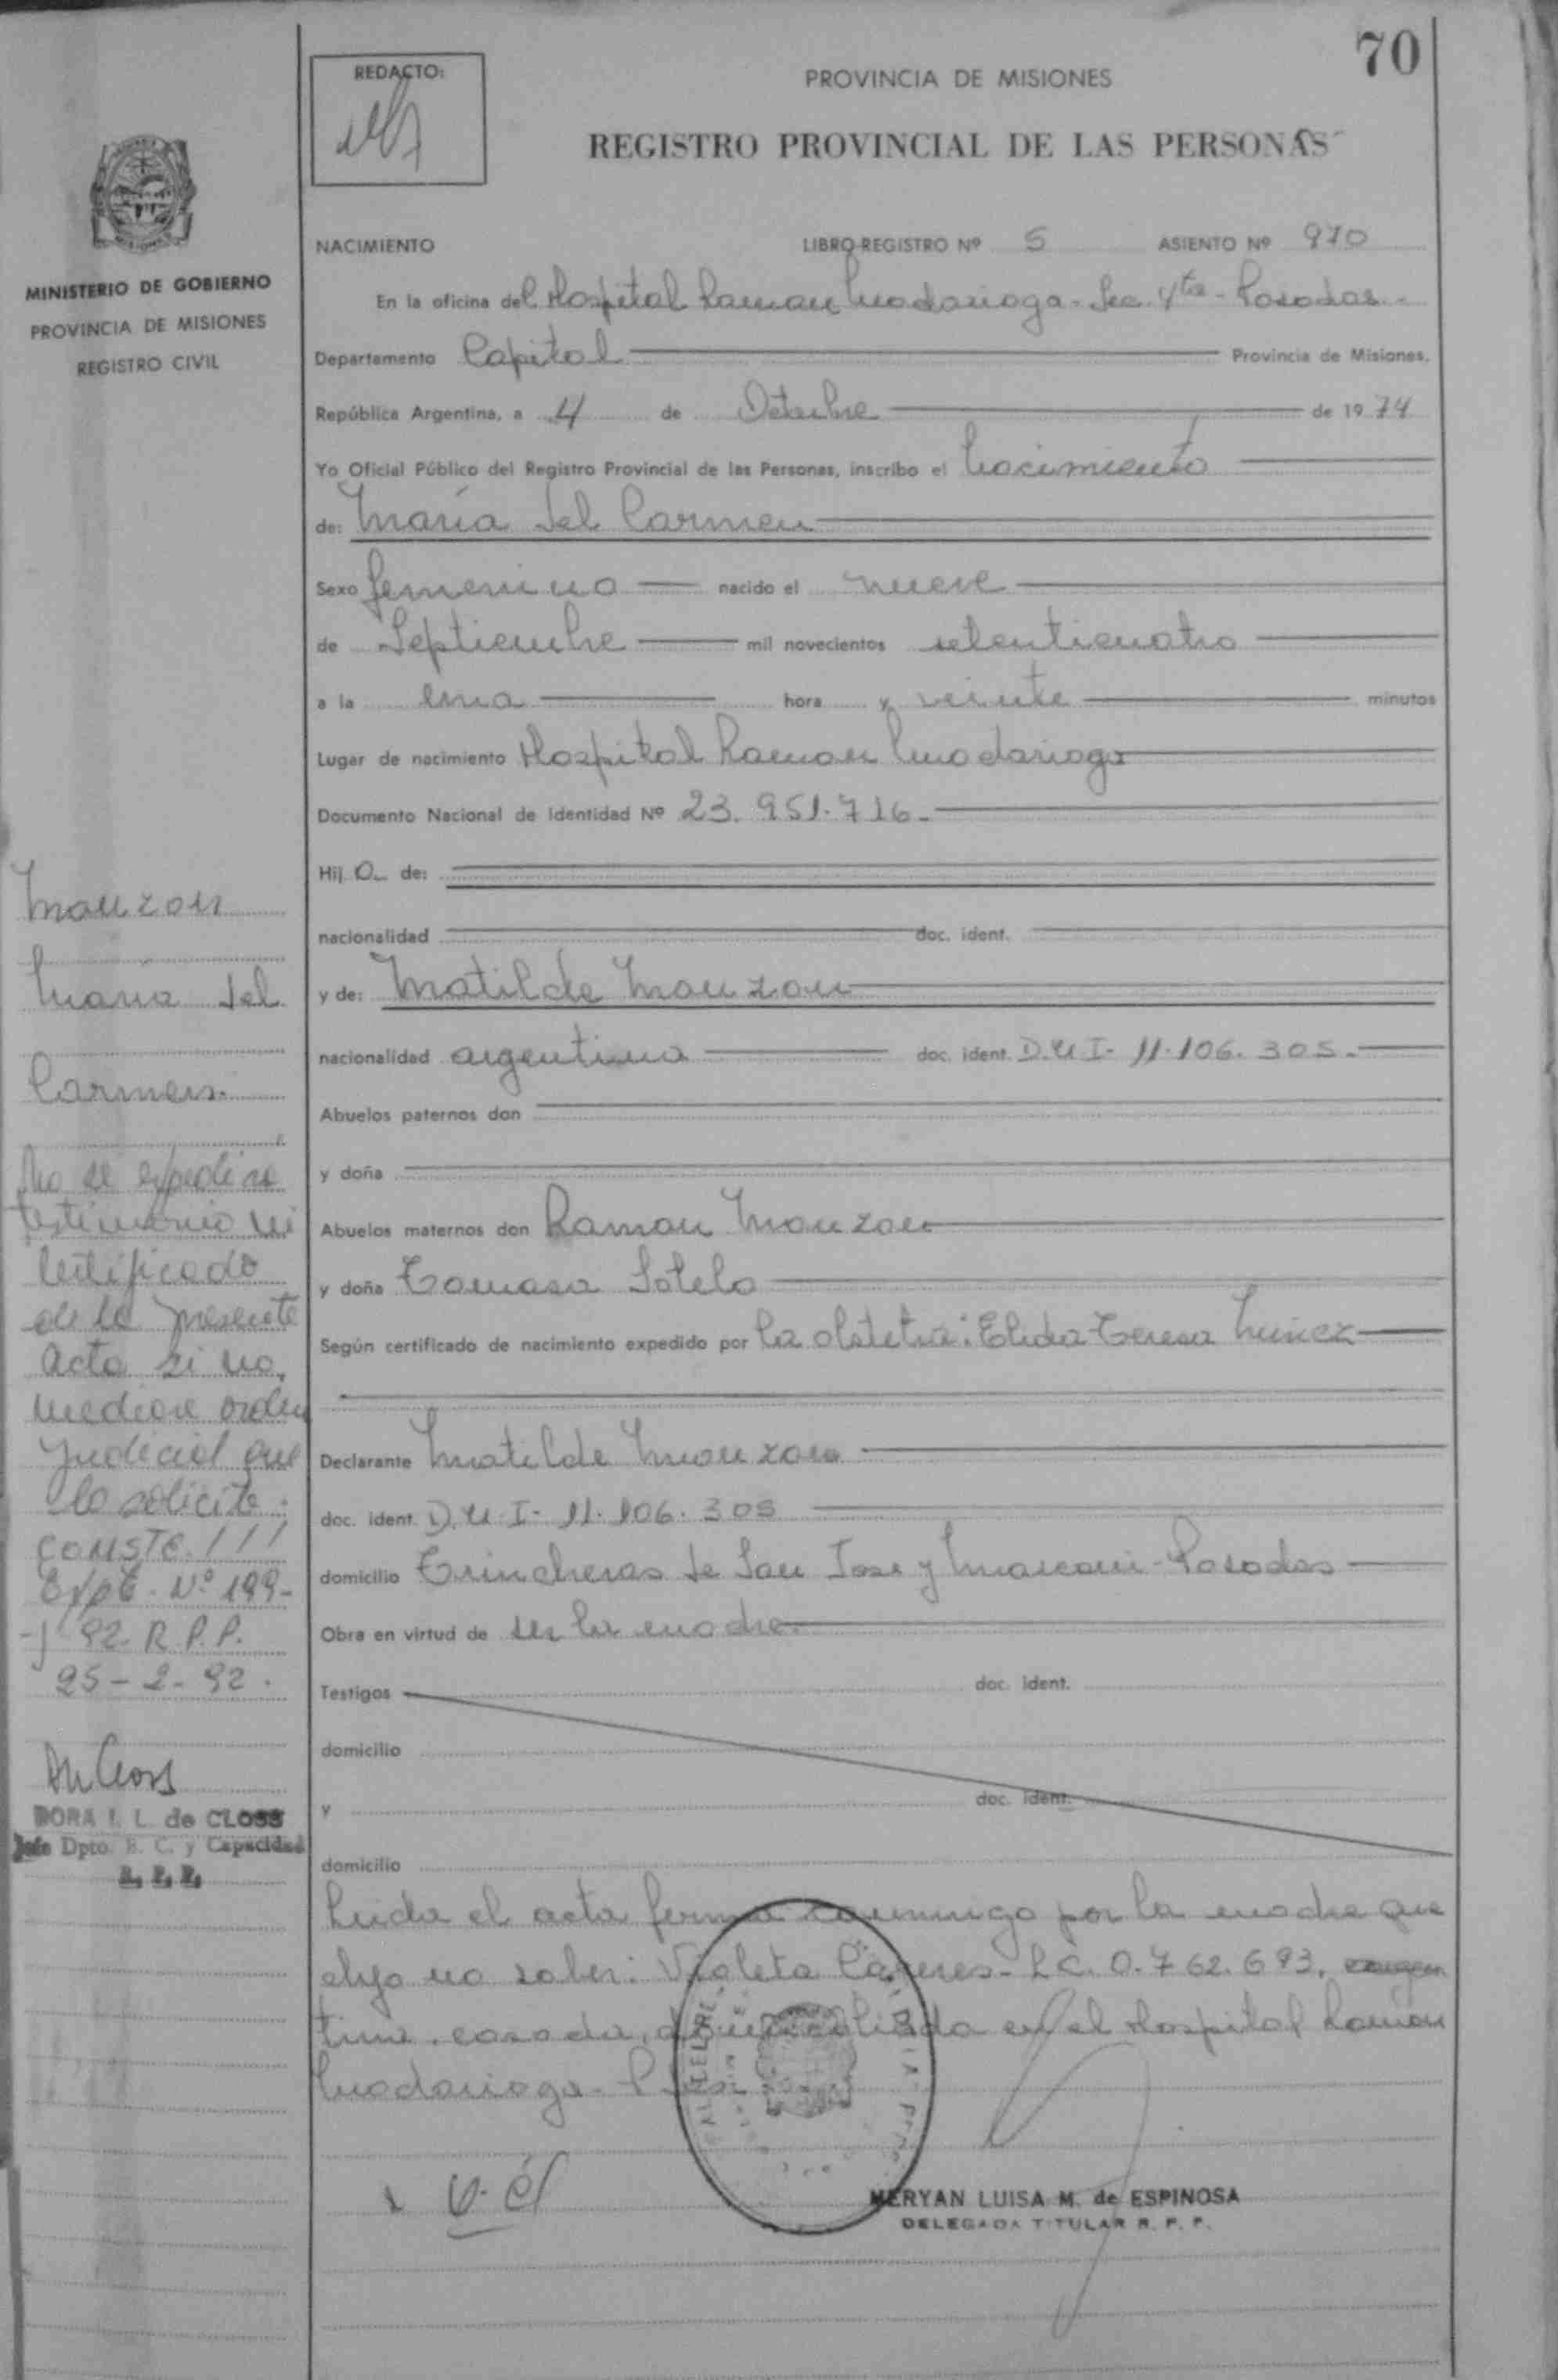 70
REDACTO:
PROVINCIA DE MISIONES
REGISTRO PROVINCIAL DE LAS PERSONAS
MINISTERIO DE GOBIERNO
PROVINCIA DE MISIONES
REGISTRO CIVIL
NACIMIENTO LIBRO-REGISTRO Nº 5 ASIENTO Nº 970
En la oficina del Hospital Ramon Madariaga - Sec 4ta - Posadas -
Departamento Capital Provincia de Misiones,
República Argentina, a 4 de Octubre de 1974
Yo Oficial Público del Registro Provincial de las Personas, inscribo el Nacimiento
de: María del Carmen
Sexo femenino nacido el nueve
de Septiembre mil novecientos setenticuatro
a la una hora y veinte minutos
Lugar de nacimiento Hospital Ramon Madariaga
Documento Nacional de Identidad Nº 23.951.716.-
Hij a de:
nacionalidad doc. ident.
y de: Matilde Monzon
nacionalidad argentina doc. ident. D.U I- 11.106.305.-
Abuelos paternos don
y doña
Abuelos maternos don Ramon Monzon
y doña Tomasa Sotelo
Según certificado de nacimiento expedido por la obstetra: Elida Teresa Nuñez
Declarante Matilde Monzon
doc. ident. D.U.I- 11.106.305
domicilio Trincheras de San Jose y Marconi - Posadas
Obra en virtud de ser la madre.
Testigos doc. ident.
domicilio
y doc. ident.
domicilio
Leida el acta firma conmigo por la madre que
dijo no saber: Violeta Caceres - L.C. 0.762.693. argen
tina, casada, domiciliada en el Hospital Ramon
Madariaga -
MERYAN LUISA M. de ESPINOSA
DELEGADA TITULAR R. P. P.
Monzon
María del
Carmen.
No se expedira
testimonio ni
certificado
de la presente
acta si no,
mediare orden
judicial que
lo solicite.
CONSTE. ///
Expte. Nº 199-
92. R.P.P.
25-2-92.
DORA I. L. de CLOSS
Jefe Dpto. E. C. y Capacidad
R. P. P.